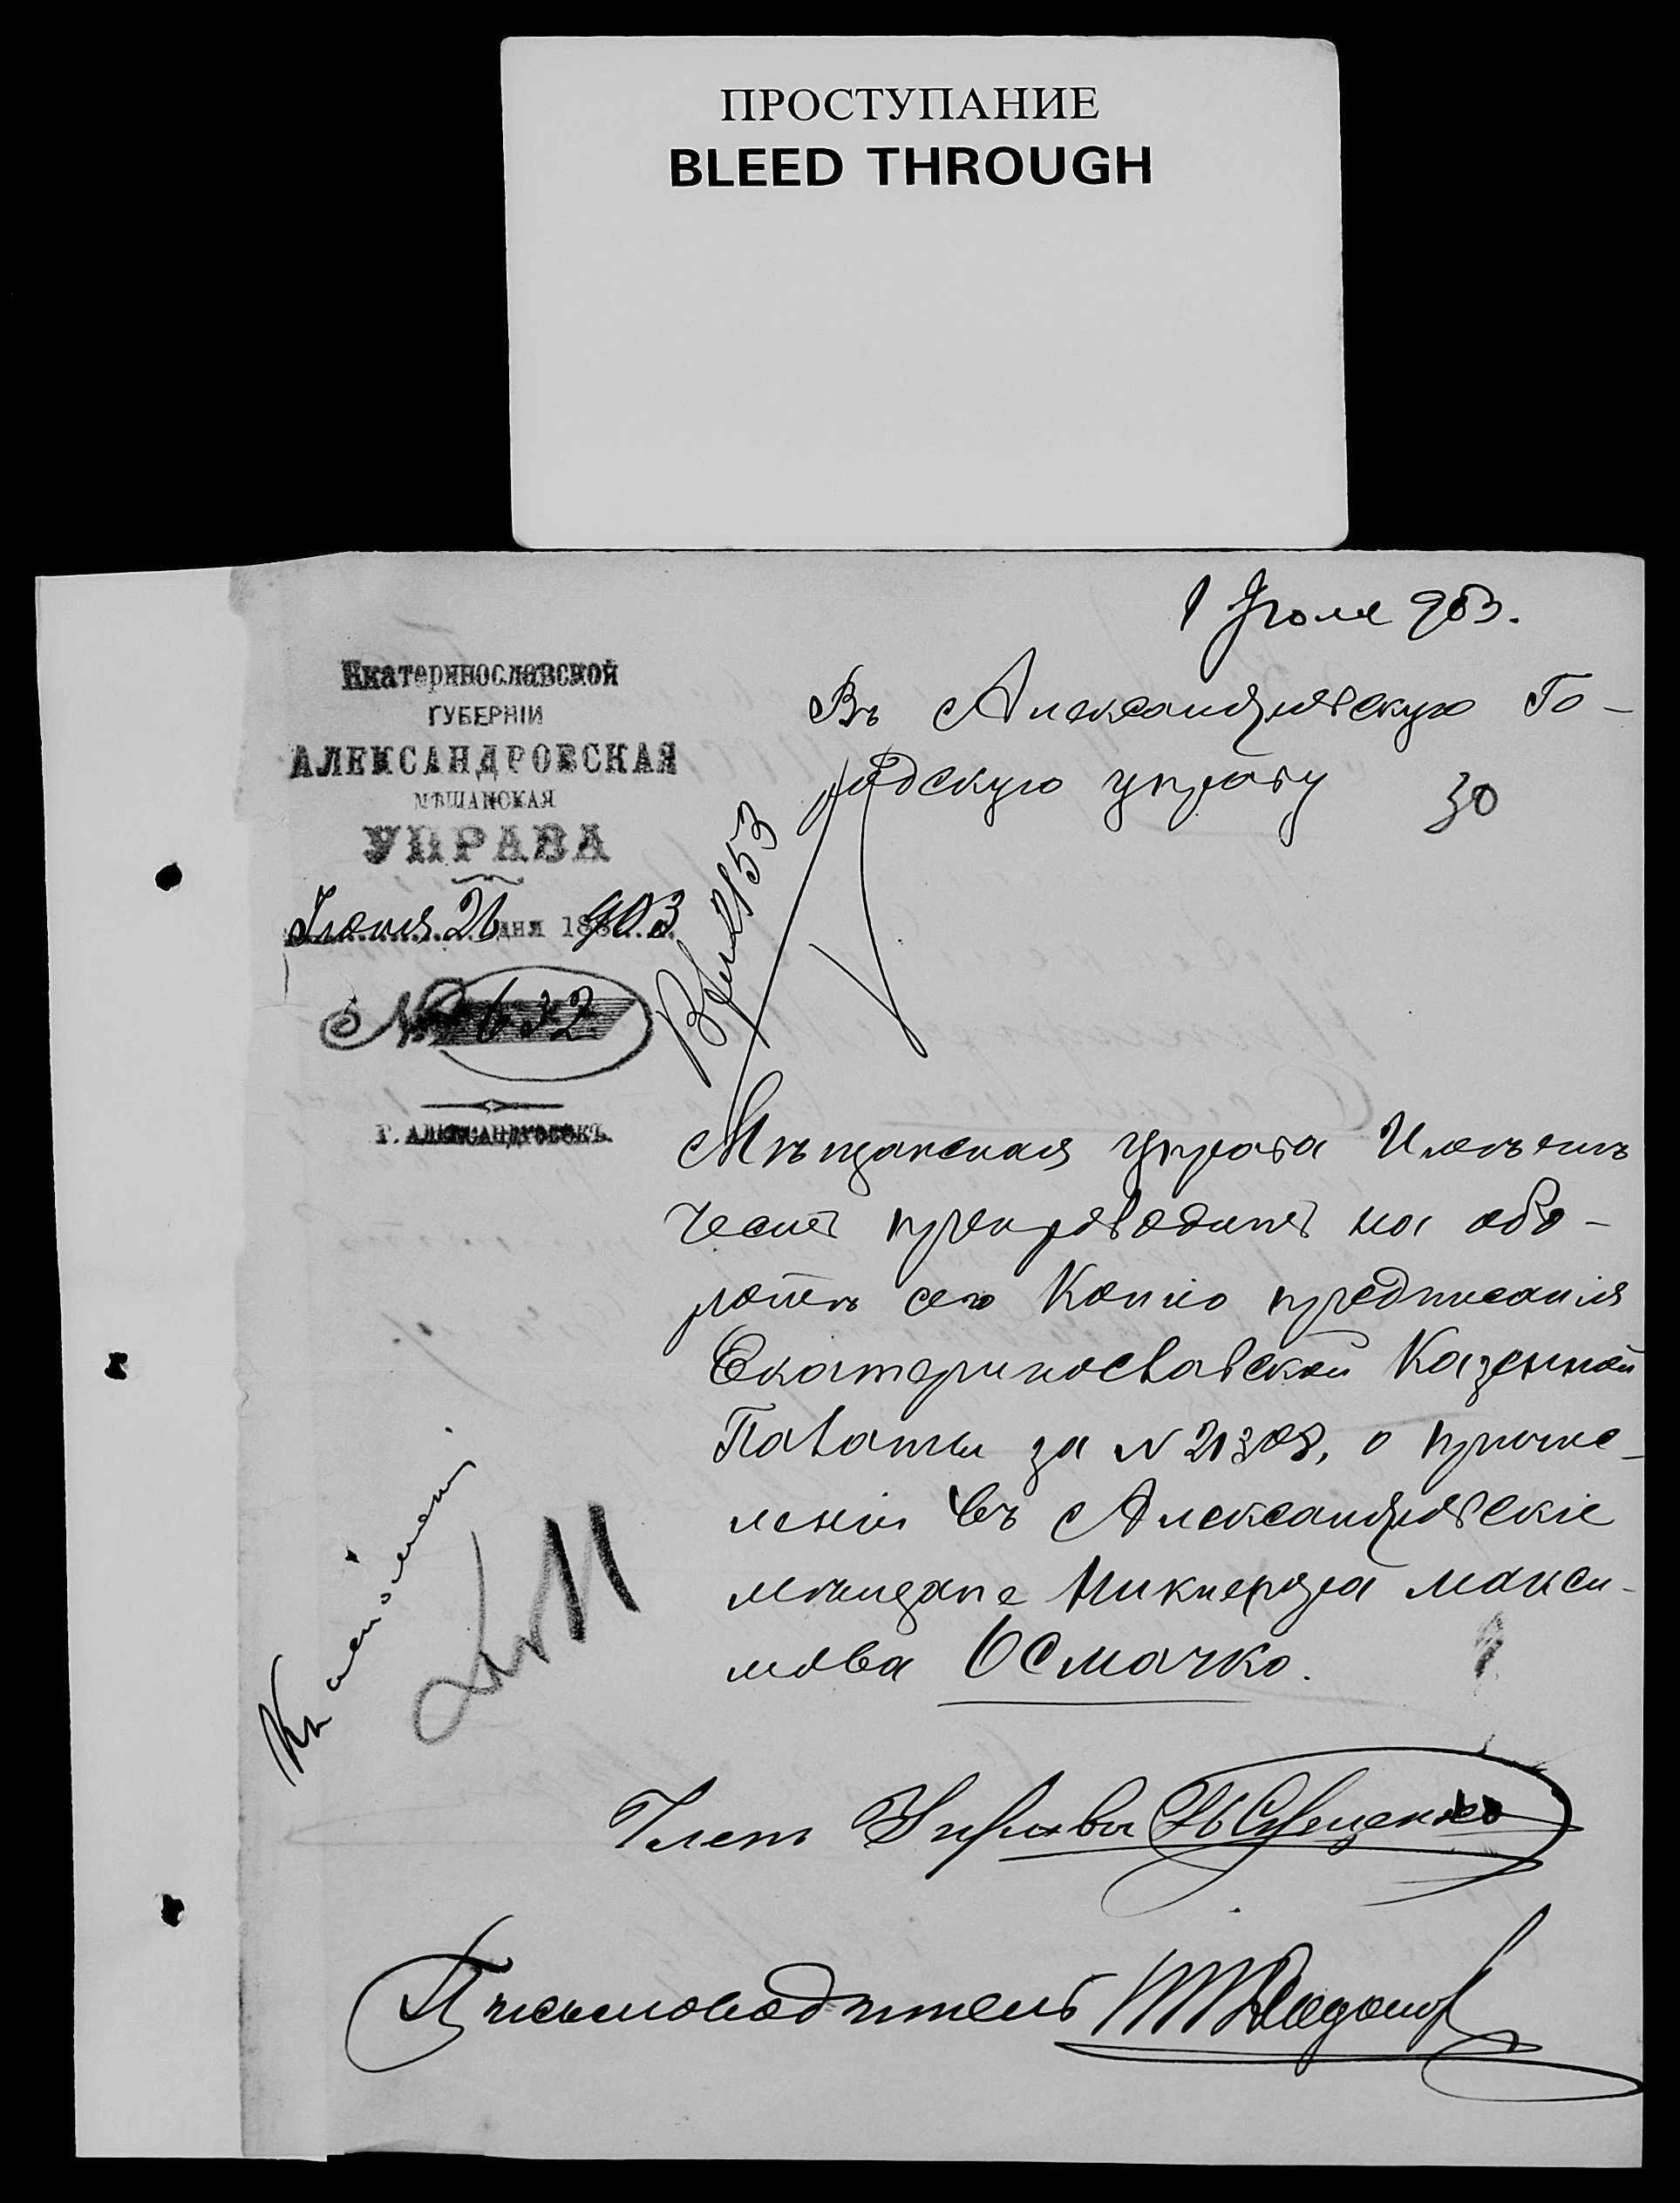 ПРОСТУПАНИЕ
BLEED THROUGH
1 Іюля 903.
Екатеринославской
ГУБЕРНІИ
АЛЕКСАНДРОВСКАЯ
МѢЩАНСКАЯ
УПРАВА
Іюня 26 дня 18 903
№ 632
Г. АЛЕКСАНДРОВСКЪ.
Въ Александровскую Го-
родскую управу
30
2153
Мѣщанская управа Имѣетъ
честь препроводить на обо-
ротѣ сего Копію предписанія
Екатеринославской Казенной
Палаты за № 21308, о причис-
леніи въ Александровскіе
мѣщане Никифора Макси-
мова Осмачко.
Членъ Управы
Письмоводитель